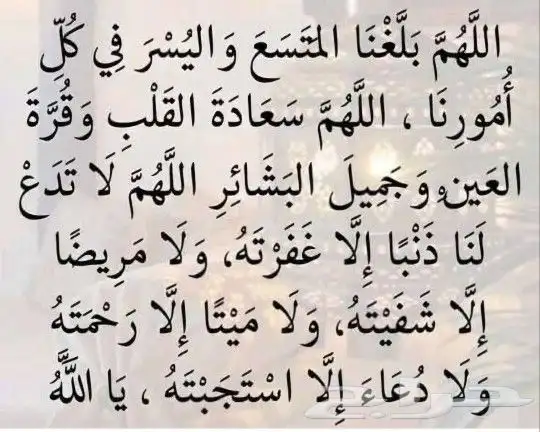 اللَّهُمَّ بَلِّغْنَا المتَسَعَ وَاليُسْرَ فِي كُلِّ
أُمُورِنَا ، اللَّهُمَّ سَعَادَةَ القَلْبِ وَقُرَّةَ
العَينِ وَجَمِيلَ البَشَائِرِ اللَّهُمَّ لَا تَدَعْ
لَنَا ذَنْبًا إِلَّا غَفَرْتَهُ، وَلَا مَرِيضًا
إِلَّا شَفَيْتَهُ، وَلَا مَيْتًا إِلَّا رَحْمَتَهُ
وَلَا دُعَاءَ إِلَّا اسْتَجَبْتَهُ ، يَا اللَّهُ
حراج